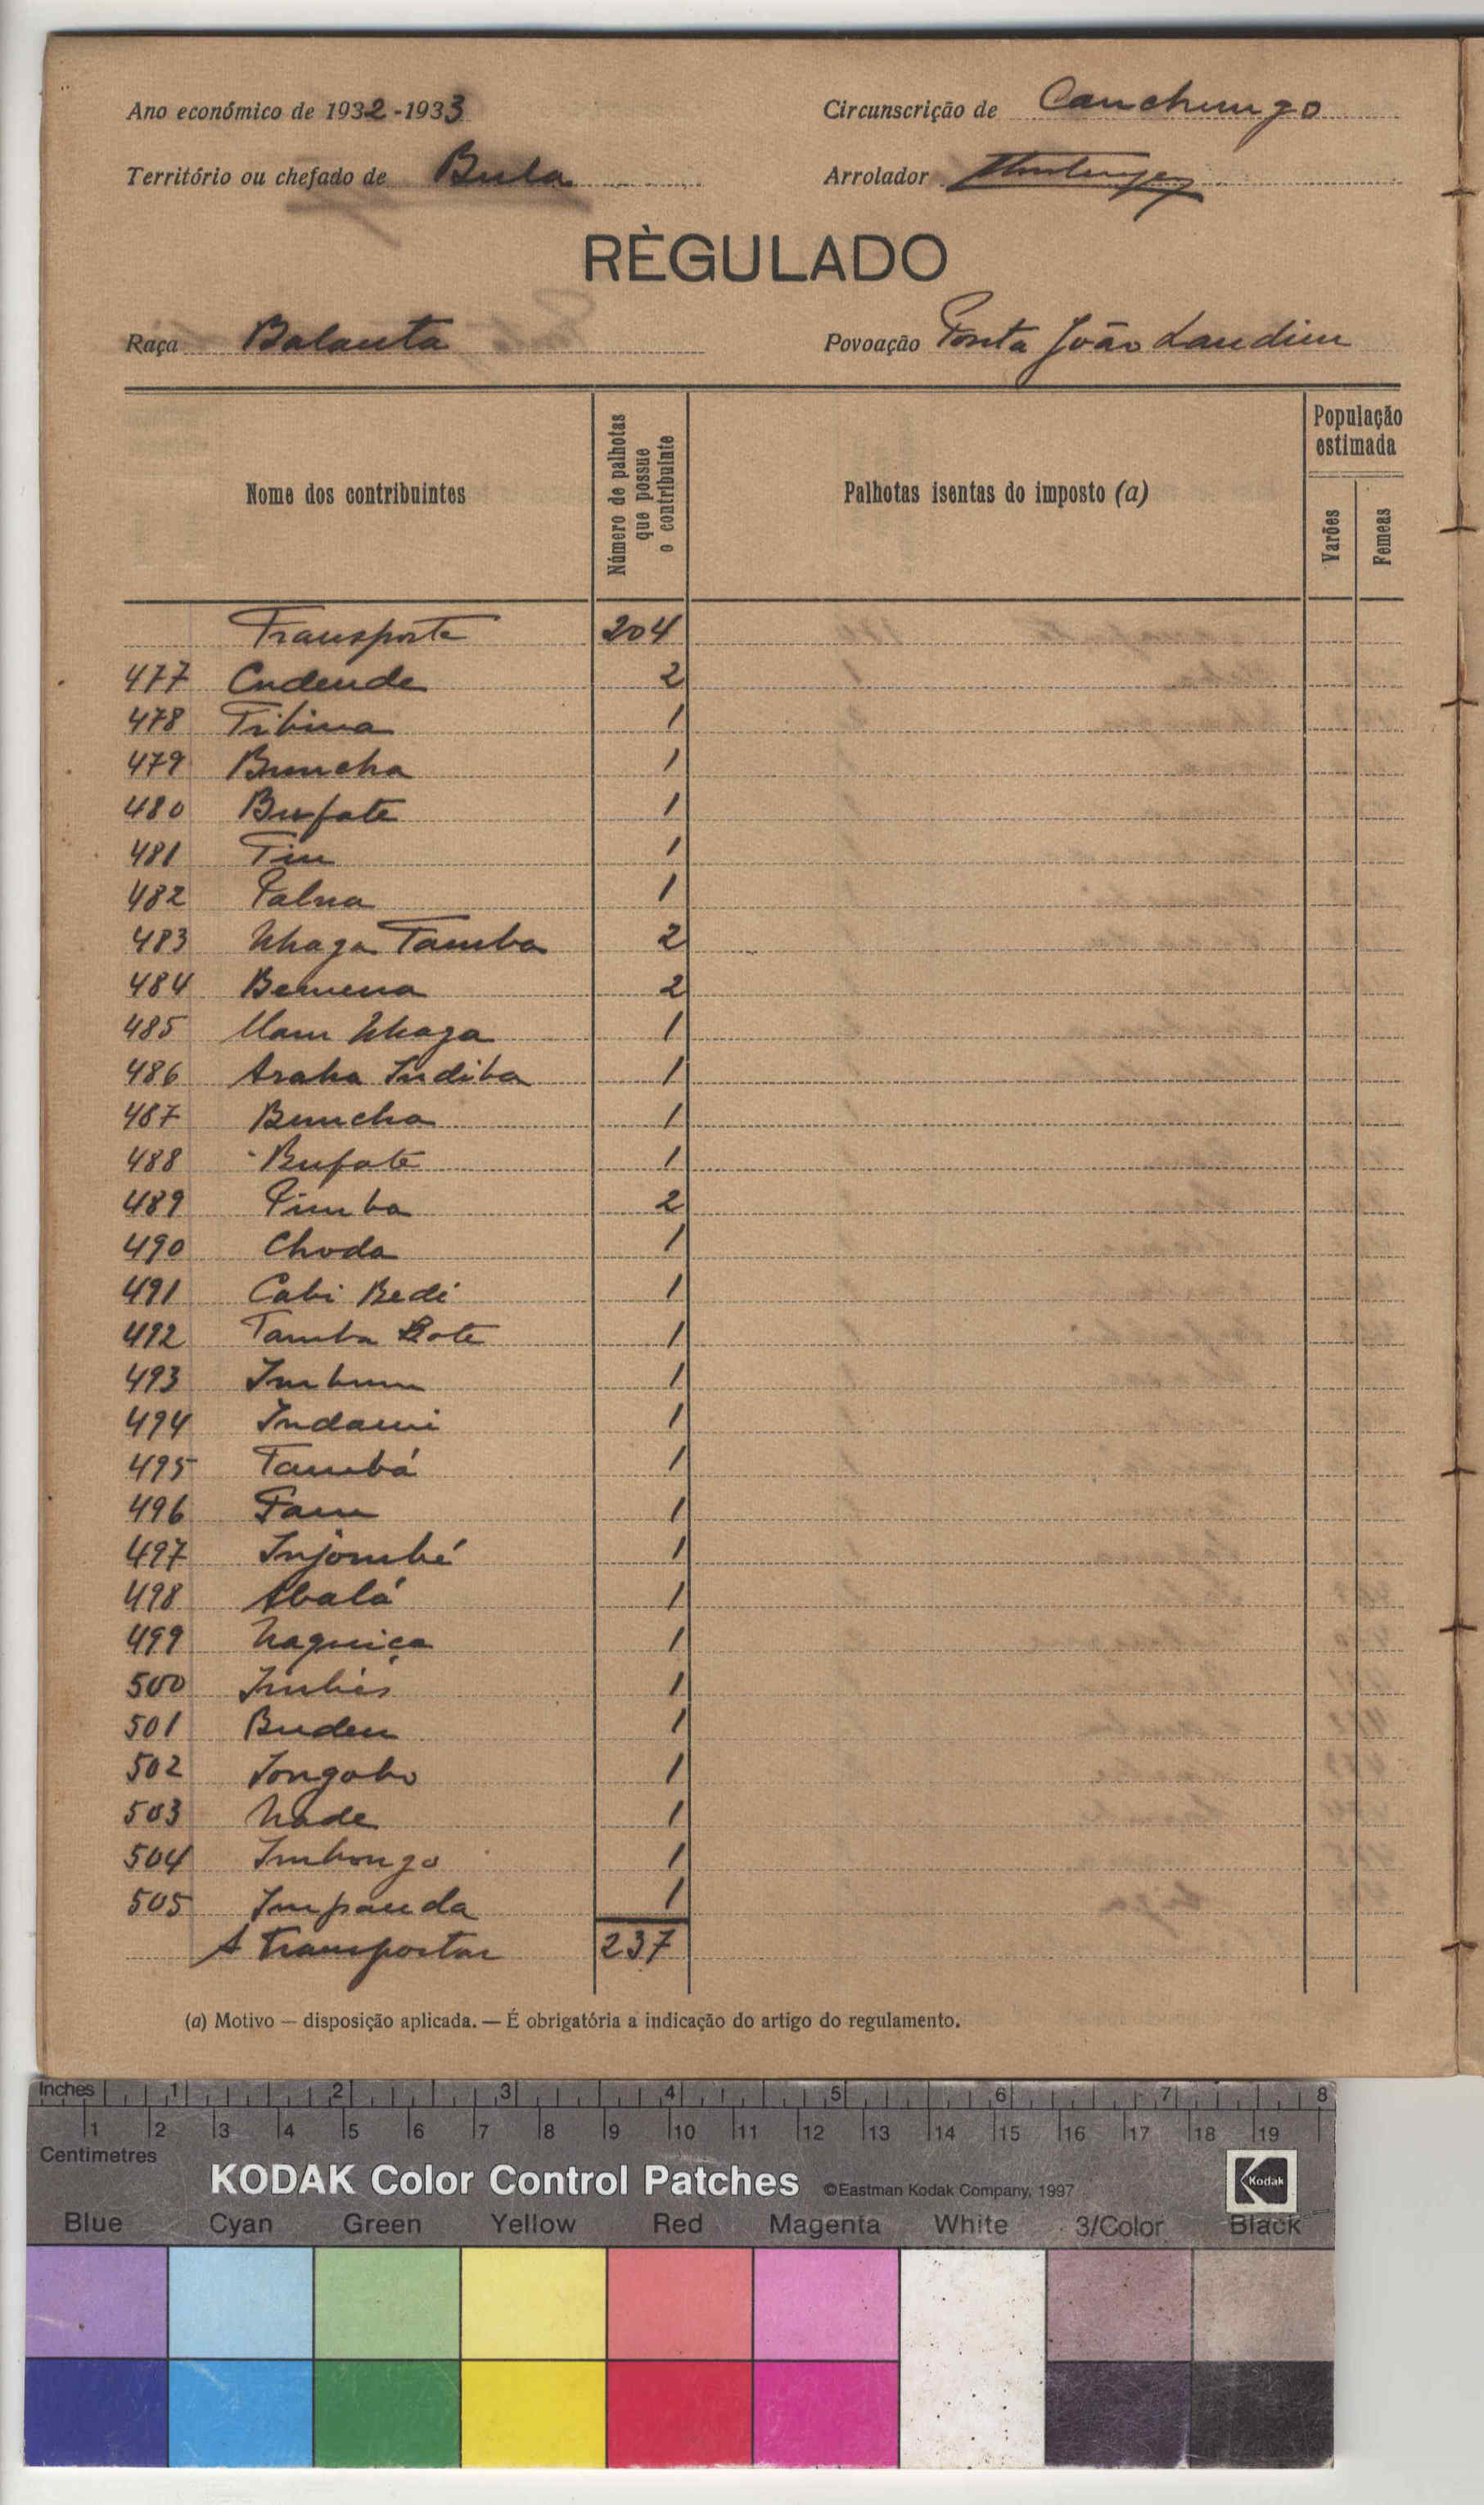 Ano económico de 1932-1933 Circunscrição de Canchungo
Território ou chefado de Bula Arrolador
RÈGULADO
Raça Balanta Povoação Ponta João Landim
Nome dos contribuintes
Número de palhotas que possue o contribuinte
Palhotas isentas do imposto (a)
População estimada
Varões
Femeas
Transporte 204
477 Cudende 2
478 Tibina 1
479 Buncha 1
480 Bufate 1
481 Tin 1
482 Palna 1
483 Nhaga Tamba 2
484 Bemena 2
485 Mam Nhaga 1
486 Araha Indiba 1
487 Buncha 1
488 Bufate 1
489 Pimba 2
490 Choda 1
491 Cabi Bedi 1
492 Tamba Bote 1
493 Imbum 1
494 Indami 1
495 Tambá 1
496 Fam 1
497 Injombé 1
498 Abalá 1
499 Naguiça 1
500 1
501 Buden 1
502 Songobo 1
503 Nade 1
504 Imbongo 1
505 Impanda 1
A transportar 237
(a) Motivo — disposição aplicada. — É obrigatória a indicação do artigo do regulamento.
Inches 1 2 3 4 5 6 7 8
Centimetres 1 2 3 4 5 6 7 8 9 10 11 12 13 14 15 16 17 18 19
KODAK Color Control Patches ©Eastman Kodak Company, 1997 Kodak
Blue Cyan Green Yellow Red Magenta White 3/Color Black